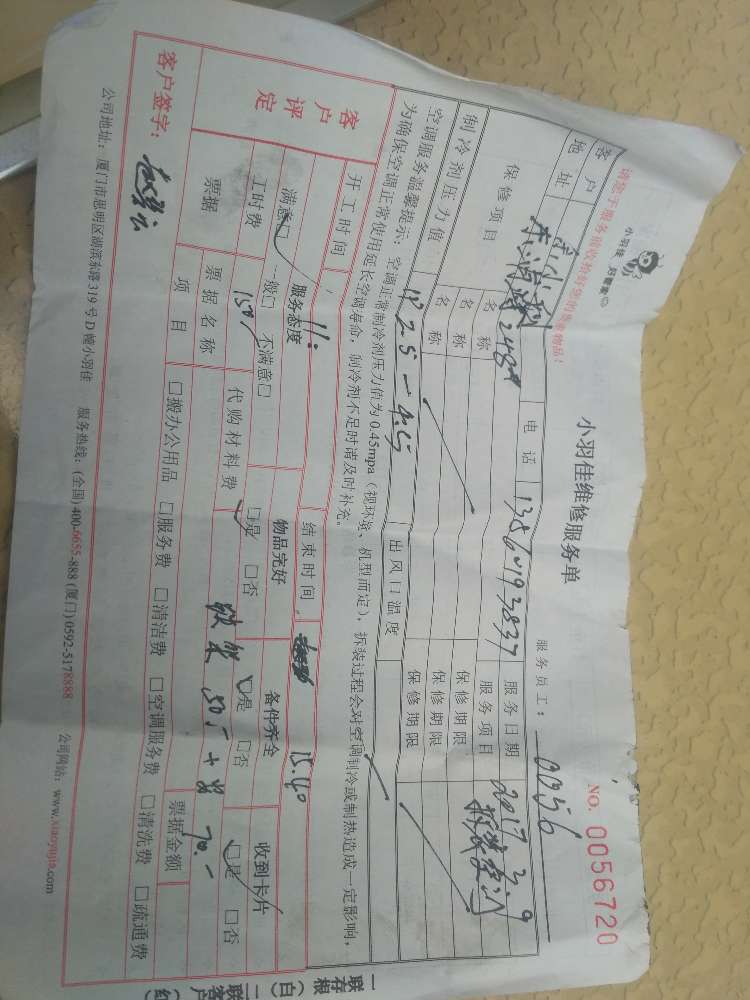 小羽佳维修服务单
小羽佳
NO. 0056720
服务员工： 0056
请您于服务前收拾好您的贵重物品！
客户地址
电话 13860193837 服务日期 2017 3 9
保修项目 名称 保修期限 服务项目
名称 保修期限
名称 保修期限
制冷剂压力值 出风口温度
空调服务温馨提示：空调正常制冷剂压力值为0.45mpa（视环境、机型而定），拆装过程会对空调制冷或制热造成一定影响，
为确保空调正常使用延长空调寿命，制冷剂不足时请及时补充。
开工时间 11: 结束时间 15:40
客户评定 服务态度 物品完好 备件齐全 收到卡片
满意□ 一般□ 不满意□ □是 □否 □是 □否 □是 □否
工时费 150 代购材料费
票据 票据名称 票据金额
项目 □搬办公用品 □服务费 □清洁费 □空调服务费 □清洗费 □疏通费
客户签字：
公司地址：厦门市思明区湖滨东路319号D幢小羽佳 服务热线：(全国) 400-6655-888 (厦门) 0592-5178888 公司网站：www.xiaoyujia.com
一联存根（白）二联客户（红